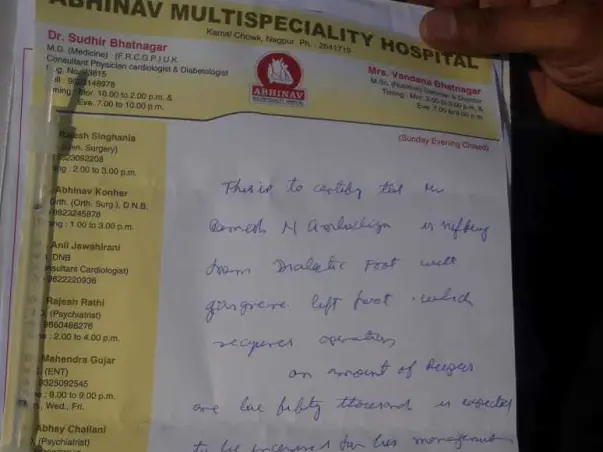 ABHINAV MULTISPECIALITY HOSPITAL
Kamal Chowk, Nagpur. Ph. : 2641719
Dr. Sudhir Bhatnagar
M.D. (Medicine) (F.R.C.G.P.) U.K.
Consultant Physician cardiologist & Diabetologist
Mor. 10.00 to 2.00 p.m. &
Eve. 7.00 to 10.00 p.m.
ABHINAV
Mrs. Vandana Bhatnagar
Eve. 7.00 to 9.00 p.m.
(Sunday Evening Closed)
Rajesh Singhania
Surgery)
9823092208
: 2.00 to 3.00 p.m.
Abhinav Konher
Orth. (Orth. Surg.), D.N.B.
9823245878
: 1.00 to 3.00 p.m.
Anil Jawahirani
DNB
Cardiologist)
9822220936
Rajesh Rathi
(Psychiatrist)
9860466276
: 2.00 to 4.00 p.m.
Mahendra Gujar
(ENT)
9325092545
: 8.00 to 9.00 p.m.
Wed., Fri.
Abhay Challani
(Psychiatrist)
This is to certify that Mr
Ramesh N is suffering
from Diabetic Foot with
gangrene left foot which
requires operation
an amount of Rupees
one lac fifty thousand is expected
to be incurred for his management